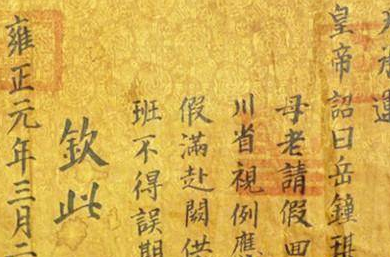 承運
皇帝詔曰岳鍾琪
母老請假回
川省視例應
假滿赴闕供
班不得誤期
欽此
雍正元年三月二